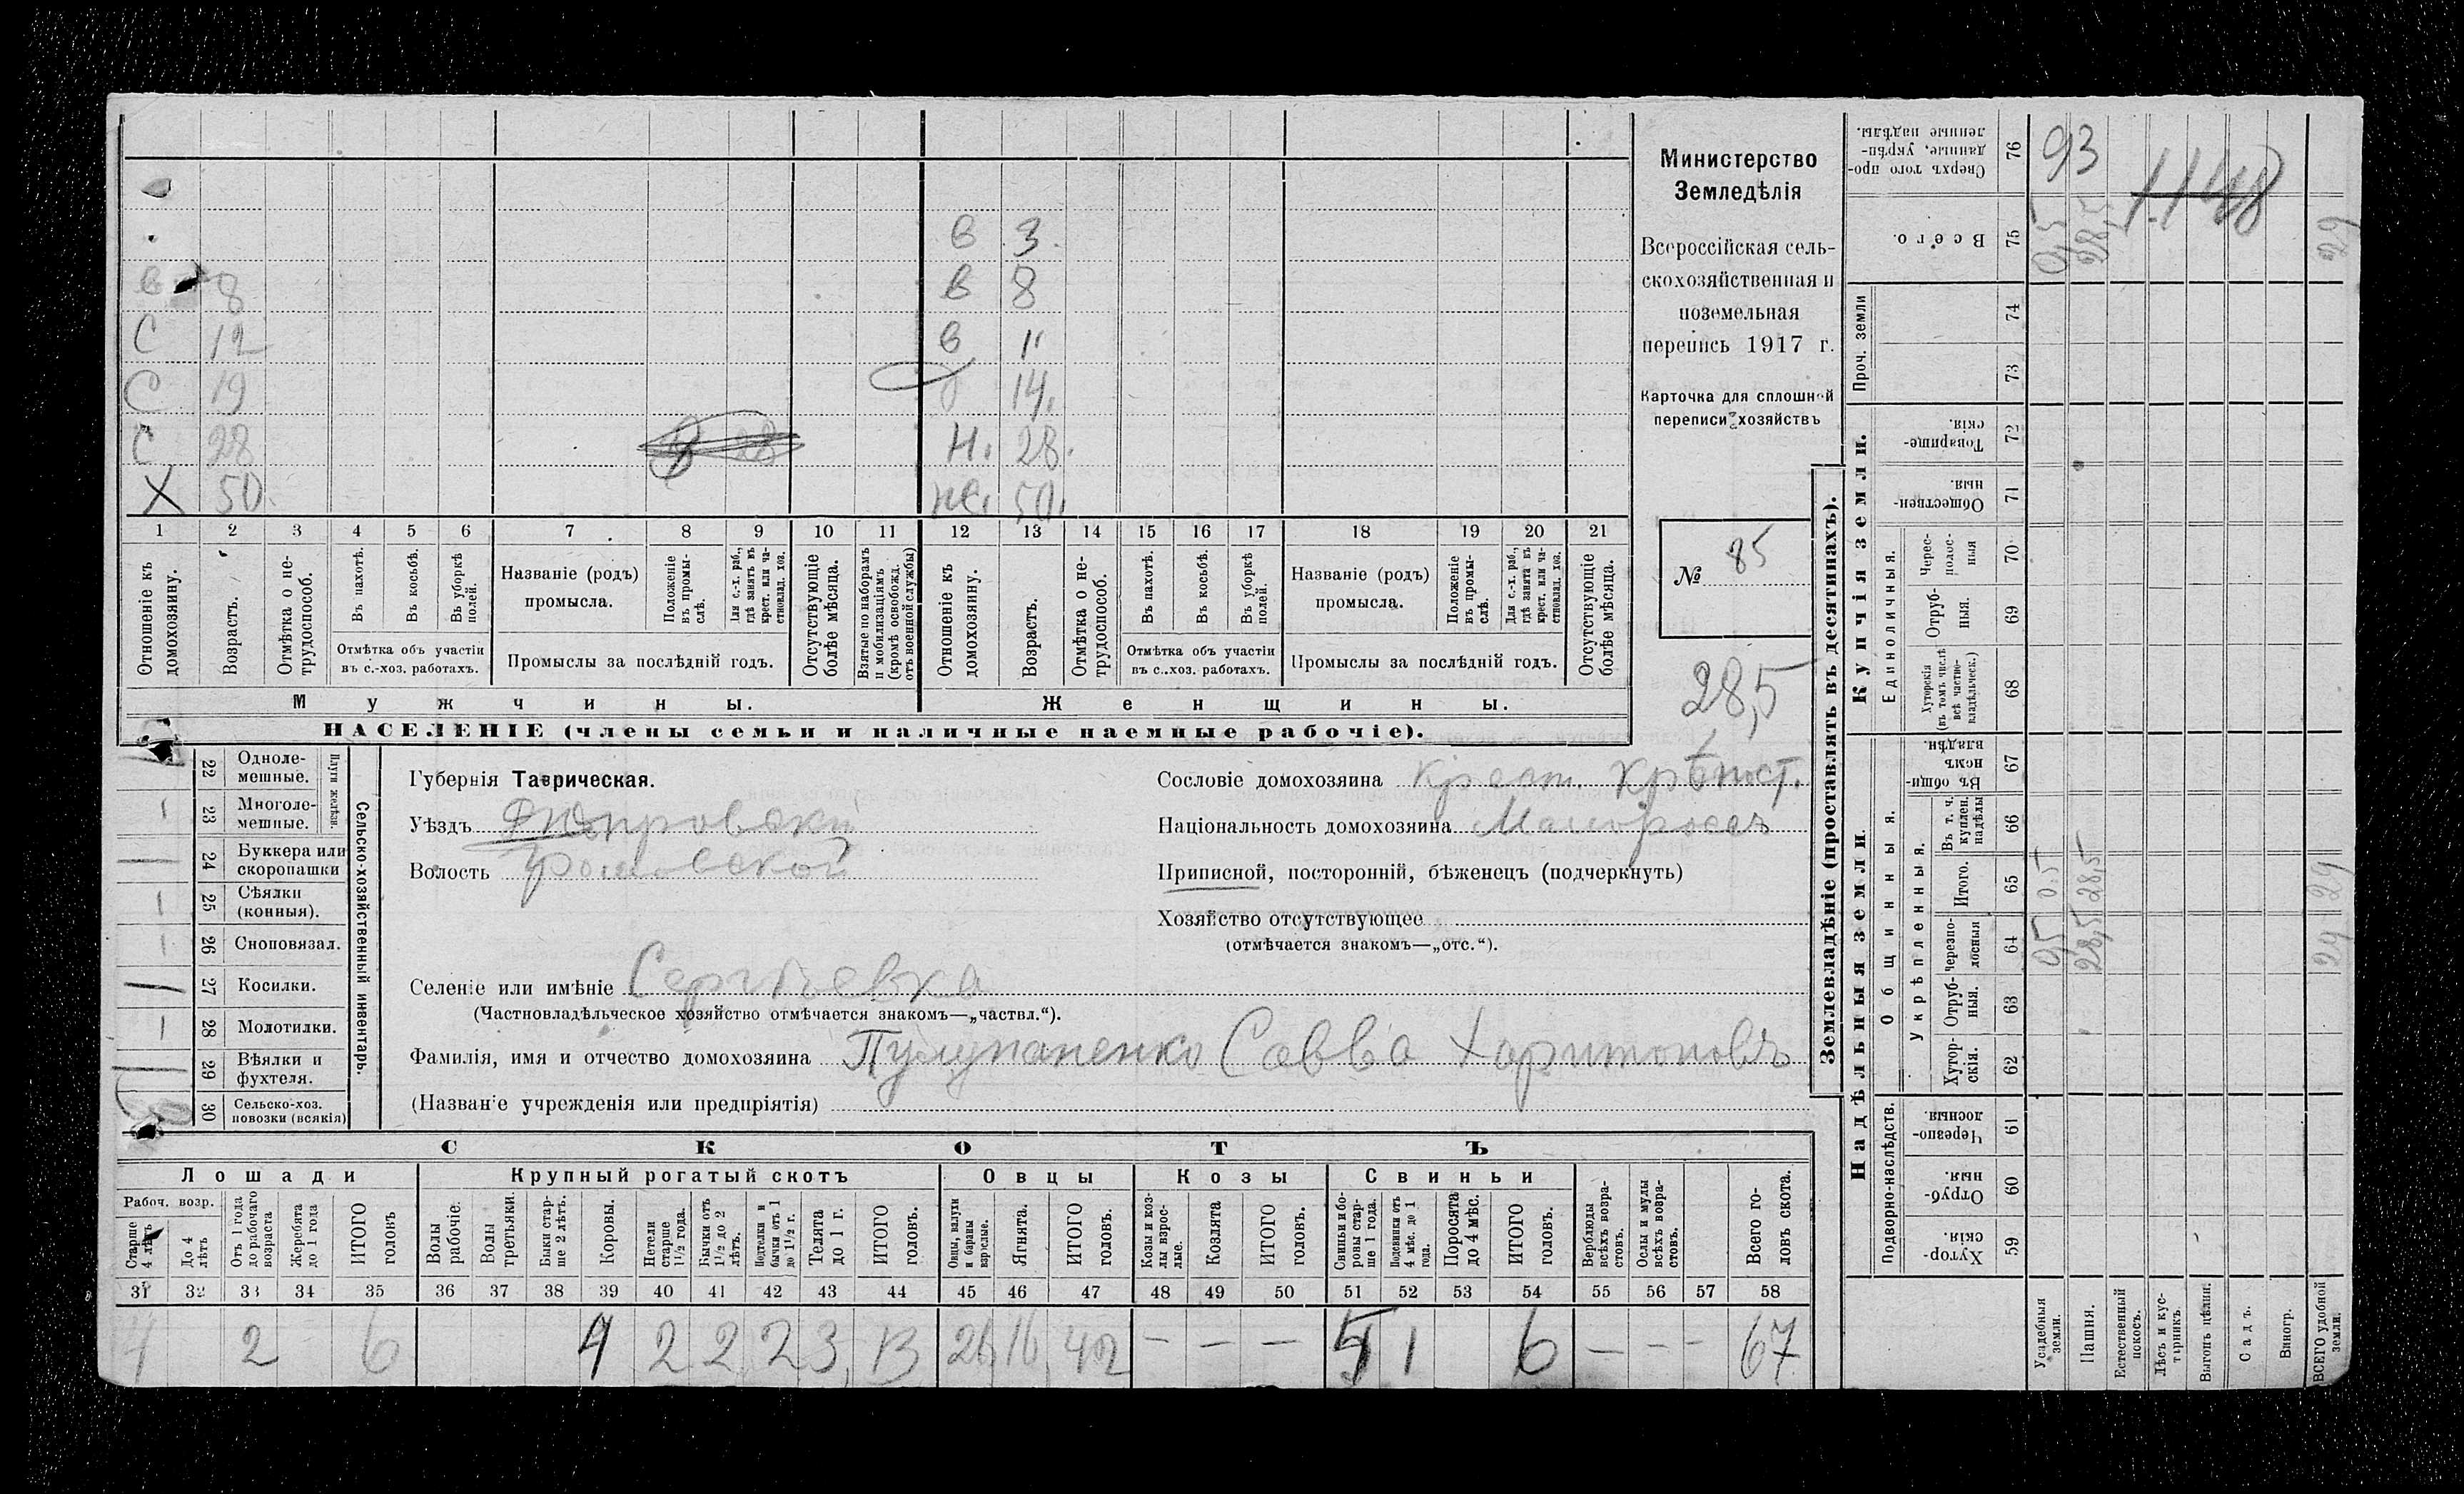 Министерство
Земледѣлія
Всероссійская сель-
скохозяйственная и
поземельная
перепись 1917 г.
Карточка для сплошной
переписи хозяйствъ
№ 85
28,5
в 3.
в 8
в 8
С 12
в 11
С 19
14.
С 28
Н. 28.
Х 50.
же. 50.
1 2 3 4 5 6 7 8 9 10 11 12 13 14 15 16 17 18 19 20 21
Отношеніе къ домохозяину.
Возрастъ.
Отмѣтка о не-трудоспособ.
Въ пахотѣ.
Въ косьбѣ.
Въ уборкѣ полей.
Отмѣтка объ участіи въ с.-хоз. работахъ.
Названіе (родъ) промысла.
Положеніе въ промы-слѣ.
Для с.-х. раб., гдѣ занятъ въ крест. или ча-стновлад. хоз.
Промыслы за послѣдній годъ.
Отсутствующіе болѣе мѣсяца.
Взятые по наборамъ и мобилизаціямъ (кромѣ освобожд. отъ военной службы)
Отношеніе къ домохозяину.
Возрастъ.
Отмѣтка о не-трудоспособ.
Въ пахотѣ.
Въ косьбѣ.
Въ уборкѣ полей.
Отмѣтка объ участіи въ с.-хоз. работахъ.
Названіе (родъ) промысла.
Положеніе въ промы-слѣ.
Для с.-х. раб., гдѣ занята въ крест. или ча-стновлад. хоз.
Промыслы за послѣдній годъ.
Отсутствующіе болѣе мѣсяца.
Мужчины.
Женщины.
НАСЕЛЕНІЕ (члены семьи и наличные наемные рабочіе).
22 Одноле-мешные.
23 Многоле-мешные.
Плуги желѣзн.
24 Буккера или скоропашки
25 Сѣялки (конныя).
26 Сноповязал.
27 Косилки.
28 Молотилки.
29 Вѣялки и фухтеля.
30 Сельско-хоз. повозки (всякія)
Сельско-хозяйственный инвентарь.
Губернія Таврическая.
Уѣздъ Днѣпровскій
Волость
Сословіе домохозяина крест.
Національность домохозяина Малороссъ
Приписной, посторонній, бѣженецъ (подчеркнуть)
Хозяйство отсутствующее
(отмѣчается знакомъ—„отс.“).
Селеніе или имѣніе Сергѣевка
(Частновладѣльческое хозяйство отмѣчается знакомъ—„частвл.“).
Фамилія, имя и отчество домохозяина Савва Харитоновъ
(Названіе учрежденія или предпріятія)
СКОТЪ
Лошади
Крупный рогатый скотъ
Овцы
Козы
Свиньи
Рабоч. возр.
Старше 4 лѣтъ
До 4 лѣтъ
Отъ 1 года до рабочаго возраста
Жеребята до 1 года
ИТОГО головъ
Волы рабочіе.
Волы третьяки.
Быки стар-ше 2 лѣтъ.
Коровы.
Нетели старше 1½ года.
Бычки отъ 1½ до 2 лѣтъ.
Подтелки и бычки отъ 1 до 1½ г.
Телята до 1 г.
ИТОГО головъ.
Овцы, валухи и бараны взрослые.
Ягнята.
ИТОГО головъ.
Козы и коз-лы взрос-лые.
Козлята
ИТОГО головъ.
Свиньи и бо-ровы стар-ше 1 года.
Подсвинки отъ 4 мѣс. до 1 года.
Поросята до 4 мѣс.
ИТОГО головъ.
Верблюды всѣхъ возра-стовъ.
Ослы и мулы всѣхъ возра-стовъ.
Всего го-ловъ скота.
31 32 33 34 35 36 37 38 39 40 41 42 43 44 45 46 47 48 49 50 51 52 53 54 55 56 57 58
4 2 6 4 2 2 2 3 13 26 16 42 — — — 5 1 6 — — — 67
Землевладѣніе (проставлять въ десятинахъ).
Надѣльныя земли.
Купчія земли.
Проч. земли
Подворно-наслѣдств.
Общинныя.
Укрѣпленныя.
Единоличныя.
Хутор-скія. 59
Отруб-ныя. 60
Черезпо-лосныя. 61
Хутор-скія. 62
Отруб-ныя. 63
Черезпо-лосныя 64
Итого. 65
Въ т. ч. куплен. надѣлы 66
Въ общин-номъ владѣн. 67
Хуторскія (въ томъ числѣ всѣ частно-владѣльческ.) 68
Отруб-ныя. 69
Черес-полос-ныя 70
Обществен-ныя. 71
Товарище-скія. 72
73
74
Всего. 75
Сверхъ того про-данные, укрѣп-ленные надѣлы. 76
Усадебныя земли.
Пашня.
Естественный покосъ.
Лѣсъ и кус-тарникъ.
Выгонъ цѣлин.
Садъ.
Виногр.
ВСЕГО удобной земли.
0,5 0,5 0,5
28,5 28,5 28,5
29 29 29
93
1148